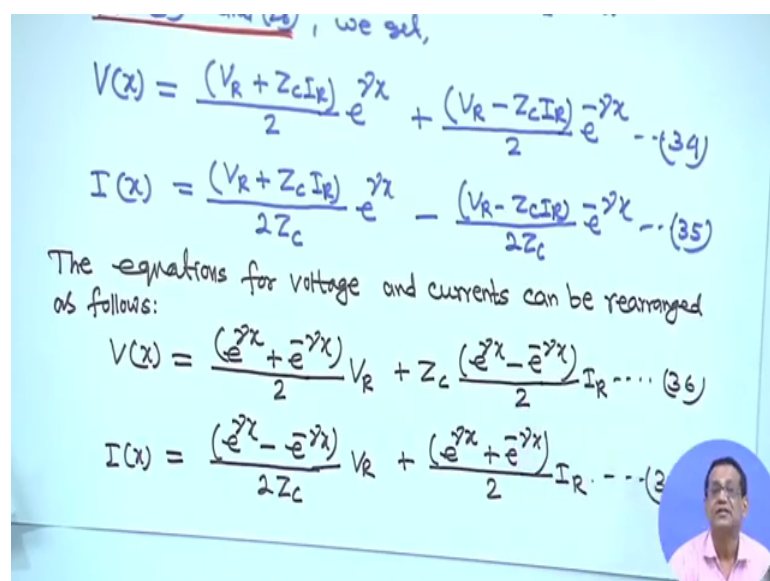 , we get,
V(x) = (V_R + Z_c I_R)/2 e^{γx} + (V_R - Z_c I_R)/2 e^{-γx} --(34)
I(x) = (V_R + Z_c I_R)/2Z_c e^{γx} - (V_R - Z_c I_R)/2Z_c e^{-γx} --(35)
The equations for voltage and currents can be rearranged
as follows:
V(x) = (e^{γx} + e^{-γx})/2 V_R + Z_c (e^{γx} - e^{-γx})/2 I_R ---- (36)
I(x) = (e^{γx} - e^{-γx})/2Z_c V_R + (e^{γx} + e^{-γx})/2 I_R. ---(3